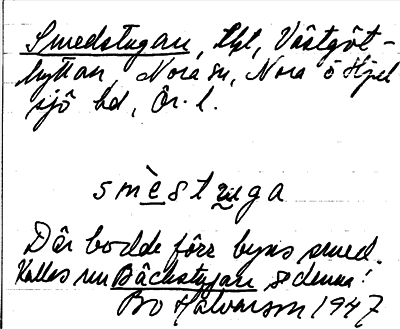 Smedstugan, lht, Västgöt-
hyttan, Nora sn, Nora o Hjul
sjö bd, Ör. l.
smè̲stu̲ga
Där bodde förr byns smed.
Kallas nu Bäckstugan, se denna!
Bo Halvarson 1947